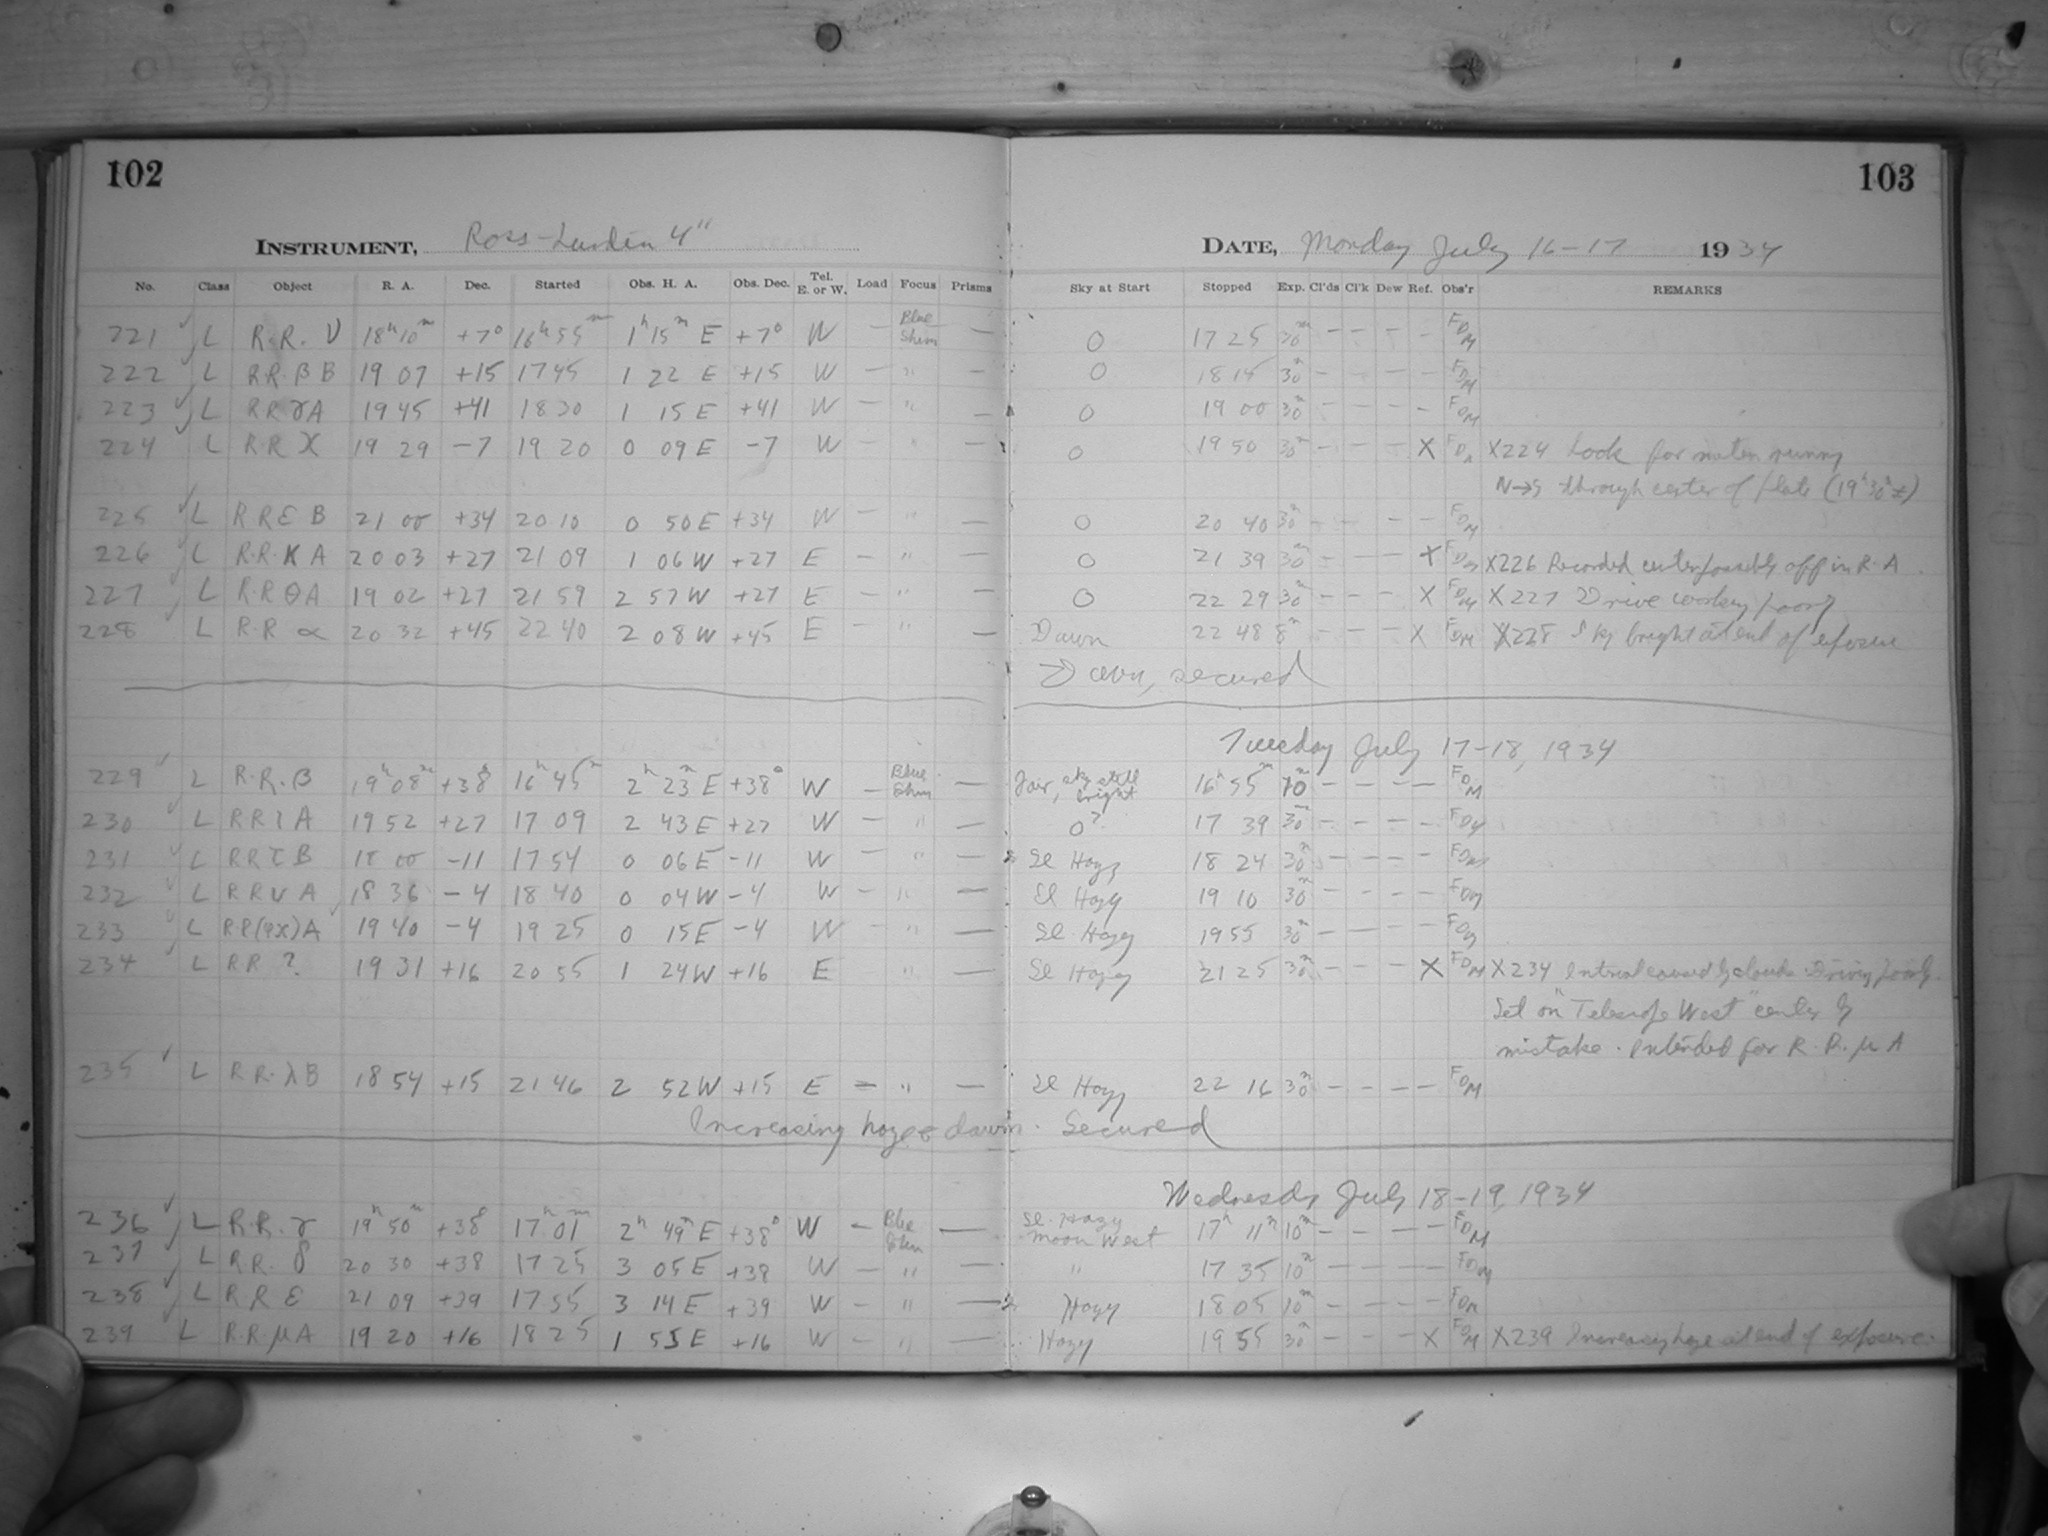 102 103
INSTRUMENT, Ross-Lundin 4" DATE, Monday July 16-17 1934
No. Class Object R. A. Dec. Started Obs. H. A. Obs. Dec. Tel. E. or W. Load Focus Prisms Sky at Start Stopped Exp. Cl'ds Cl'k Dew Ref. Obs'r REMARKS
221 ✓ L R.R. ν 18h 10m +7° 16h 55m 1h 15m E +7° W — Blue Shim — O 17 25 30m — — — — FDM
222 ✓ L R.R. β B 19 07 +15 17 45 1 22 E +15 W — " — O 18 15 30m — — — — FDM
223 ✓ L R R γ A 19 45 +41 18 30 1 15 E +41 W — " — O 19 00 30m — — — — FDM
224 ✓ L R.R X 19 29 -7 19 20 0 09 E -7 W — " — O 19 50 30m — — — X FDM X224 Look for meteor running
N→S through center of plate (19h 30m ±)
225 ✓ L R R ε B 21 00 +34 20 10 0 50 E +34 W — " — O 20 40 30m — — — — FDM
226 ✓ L R.R. K A 20 03 +27 21 09 1 06 W +27 E — " — O 21 39 30m — — — X FDM X226 Recorded center possibly off in R.A.
227 ✓ L R.R θ A 19 02 +27 21 59 2 57 W +27 E — " — O 22 29 30m — — — X FDM X227 Drive working poorly
228 ✓ L R.R α 20 32 +45 22 40 2 08 W +45 E — " — Dawn 22 48 8m — — — X FDM X228 Sky bright at end of exposure
Dawn, secured
Tuesday July 17-18, 1934
229 ✓ L R.R. β 19h 08m +38° 16h 45m 2h 23m E +38° W — Blue Shim — Fair, sky still bright 16h 55m 10m — — — — FDM
230 ✓ L R R ι A 19 52 +27 17 09 2 43 E +27 W — " — O? 17 39 30m — — — — FDM
231 ✓ L R R τ B 18 00 -11 17 54 0 06 E -11 W — " — Sl Hazy 18 24 30m — — — — FDM
232 ✓ L R R υ A 18 36 -4 18 40 0 04 W -4 W — " — Sl Hazy 19 10 30m — — — — FDM
233 ✓ L R R (φχ) A 19 40 -4 19 25 0 15 E -4 W — " — Sl. Hazy 19 55 30m — — — — FDM
234 ✓ L R R ? 19 31 +16 20 55 1 24 W +16 E " — Sl Hazy 21 25 30m — — — X FDM X234 Interval caused by clouds. Driving poorly.
Set on "Telescope West" center by
mistake. Intended for R.R. μ A
235 ✓ L R R. λ B 18 54 +15 21 46 2 52 W +15 E — " — Sl Hazy 22 16 30m — — — — FDM
Increasing haze & dawn. Secured
Wednesday July 18-19, 1934
236 ✓ L R.R. γ 19h 50m +38° 17h 01m 2h 49m E +38° W — Blue Shim — Sl. Hazy Moon West 17h 11m 10m — — — — FDM
237 ✓ L R R. δ 20 30 +38 17 25 3 05 E +38 W — " — " 17 35 10m — — — — FDM
238 ✓ L R R ε 21 09 +39 17 55 3 14 E +39 W — " — Hazy 18 05 10m — — — — FDM
239 L R.R. μ A 19 20 +16 18 25 1 55 E +16 W — " — Hazy 19 55 30m — — — X FDM X239 Increasing haze at end of exposure.